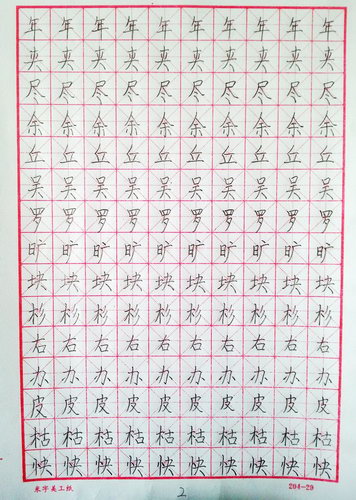 年年年年年年年年年年
夹夹夹夹夹夹夹夹夹夹
尽尽尽尽尽尽尽尽尽尽
余余余余余余余余余余
丘丘丘丘丘丘丘丘丘丘
吴吴吴吴吴吴吴吴吴吴
罗罗罗罗罗罗罗罗罗罗
旷旷旷旷旷旷旷旷旷旷
块块块块块块块块块块
杉杉杉杉杉杉杉杉杉杉
右右右右右右右右右右
办办办办办办办办办办
皮皮皮皮皮皮皮皮皮皮
枯枯枯枯枯枯枯枯枯枯
快快快快快快快快快快
米字美工纸 2 204-29